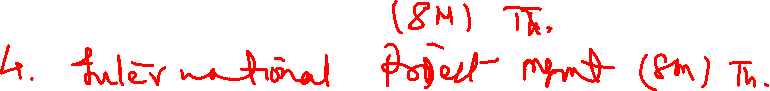 (8M) Th.
4. International Project mgmt (8m) Th.